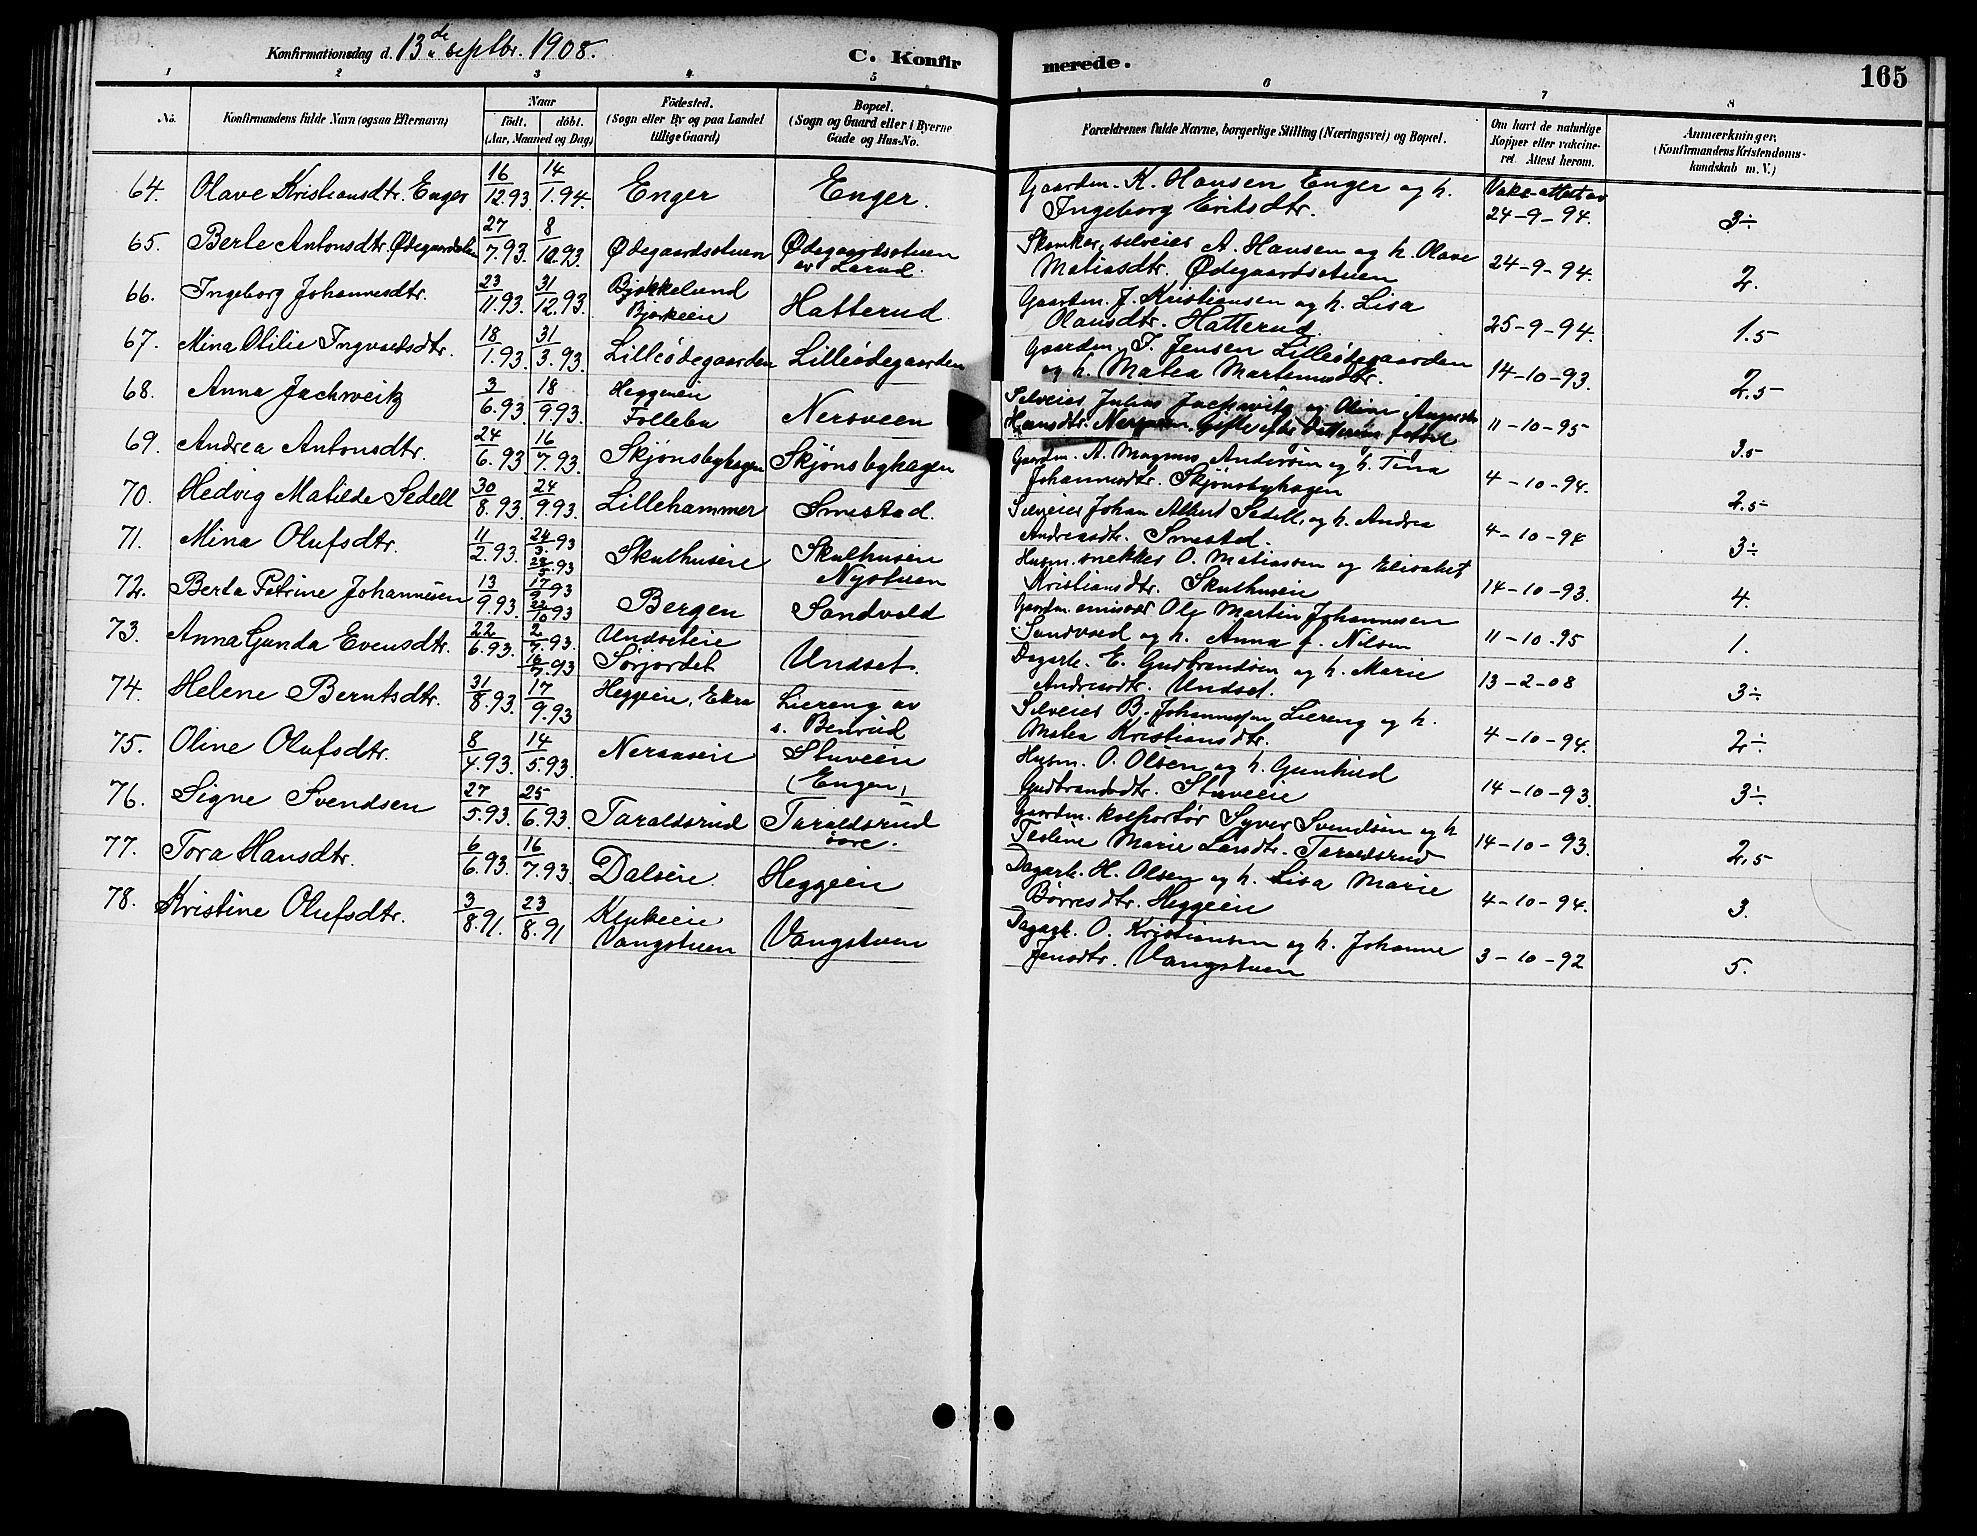 Konfirmationsdag d. 13de septbr. 1908.
C. Konfirmerede.
165
1 2 3 4 5 6 7 8
No. Konfirmandens fulde Navn (ogsaa Efternavn) Naar födt. döbt. (Aar, Maaned og Dag) Födested. (Sogn eller By og paa Landet tillige Gaard) Bopæl. (Sogn og Gaard eller i Byerne Gade og Hus-No. Forældrenes fulde Navne, borgerlige Stilling (Næringsvei) og Bopæl. Om havt de naturlige Kopper eller vakcineret. Attest herom. Anmærkninger, (Konfirmandens Kristendomskundskab m. V.)
64. Olave Kristiansdtr. Enger 16/12.93. 14/1.94. Enger Enger. Gaardm. K. Hansen Enger og h. Ingeborg Eriksdtr. Vakc. attest av 24-9-94. 3÷
65. Berte Antonsdtr. Ødegaardsstuen 27/7.93. 8/10.93. Ødegaardsstuen Ødegaardsstuen av Larud. selveier A. Hansen og h. Olave Matiasdtr. Ødegaardsstuen 24-9-94. 2.
66. Ingeborg Johannesdtr. 23/11.93. 31/12.93. Bjørkelund Bjørkeeie Hatterud. Gaardm. J. Kristiansen og h. Lisa Olausdtr. Hatterud. 25-9-94. 1.5
67. Mina Otilie Ingvaldsdtr. 18/1.93. 31/3.93. Lilleødegaarden Lilleødegaarden Gaardm. I. Jensen Lilleødegaarden og h. Matea Martinusdtr. 14-10-93. 2.5
68. Anna Jachwitz 3/6.93. 18/9.93. Heggeneie Follebu Nersveen Selveier Julius Jachwitz og Oline Augusta Hansdtr. Nersveen. 11-10-95 3.5
69. Andrea Antonsdtr. 24/6.93 16/7.93. Skjønsbyhagen Skjønsbyhagen Gaardm. A. Magnus Andersen og h. Tina Johannesdtr. Skjønsbyhagen 4-10-94. 2.5
70. Hedvig Matilde Sedell 30/8.93. 24/9.93. Lillehammer Smestad. Selveier Johan Albert Sedell, og h. Andrea Andreasdtr. Smestad. 4-10-94 3÷
71. Mina Olufsdtr. 11/2.93. 24/3.93 28/5.93 Skulhuseie Skulhuseie Nystuen Husm. snekker O. Matiassen og Elisabet Kristiansdtr. Skulhuseie 14-10-93. 4.
72. Berta Petrine Johannesen 13/9.93. 17/9.93 22/10.93 Bergen Sandvold Gaardm. emissær Ole Martin Johannesen Sandvold og h. Anna f. Nilsen 11-10-95 1.
73. Anna Gunda Evensdtr. 22/6.93. 2/7.93. 16/7.93 Undseteie Sørjordet Undset. Dagarb. E. Gudbrandsen og h. Marie Andreasdtr. Undset. 13-2-08 3÷
74. Helene Berntsdtr. 31/8.93. 17/9.93 Heggeeie, Ekra Liereng av s. Benrud Selveier B. Johannessen Liereng og h. Matea Kristiansdtr. 4-10-94. 2÷
75. Oline Olufsdtr. 8/4.93. 14/5.93. Neraaseie Stuveeie (Engen) Husm. O. Olsen og h. Gunhild Gudbrandsdtr. Stuveeie 14-10-93. 3÷
76. Signe Svendsen 27/5.93. 25/6.93. Taraldsrud Taraldsrud øvre. Gaardm. kolportør Syver Svendsen og h Teoline Marie Larsdtr. Taraldsrud 14-10-93. 2.5
77. Tora Hansdtr. 6/6.93. 16/7.93. Dalseie. Heggeeie Dagarb. H. Olsen og h. Lisa Marie Børresdtr. Heggeeie 4-10-94. 3.
78. Kristine Olufsdtr. 3/8.91. 23/8.91 Klukeeie Vangstuen Vangstuen Dagarb. O. Kristiansen og h. Johanne Jensdtr. Vangstuen 3-10-92 5.